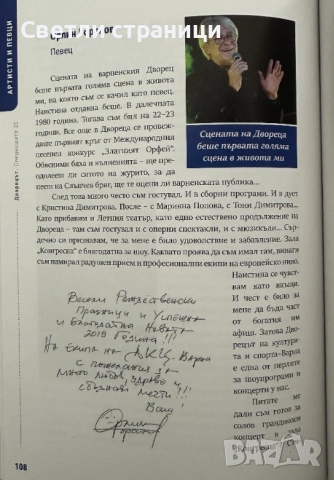 Светлистраници
Певец
Сцената на варненския Дворец
беше първата голяма сцена в живота
ми, на която съм се качил като певец.
Наистина отдавна беше. В далечната
1980 година. Тогава съм бил на 22–23
години. Все още в Двореца се провеж-
даше първият кръг от Международния
песенен конкурс „Златният Орфей“.
Обясниха баха и хълменията – пре-
одолееш ли ситото на журито, за да
пееш на Слънчев бряг, ще те оцени ли варненската публика...
След това много често съм гостувал. И в сборни програми. И в дует
с Кристина Димитрова. После – с Марияна Попова, с Тони Димитрова...
Като прибавим и Летния театър, като едно естествено продължение на
Двореца – там съм гостувал и с оперни спектакли, и с мюзикъли... Сър-
дечно си признавам, че за мене е било удоволствие и забавление. Зала
„Конгресна“ е благодатна за шоу. Каквато проява да съм имал там, винаги
съм намирал радушен прием и професионални екипи на европейско ниво.
Сцената на Двореца
беше първата голяма
сцена в живота ми
Наистина се чувст-
вам като вкъщи.
И чест е било за
мене да бъда част
от богатия им
афиш. Затова Дво-
рецът на култура-
та и спорта-Варна
е една от перлите
за шоупрограми и
концерти у нас.
Питате ме
дали съм готов за
солов грандиозен
концерт в зала
„Конгресна“
Весели Рождественски
Празници и Успешна
и Благодатна Новата
2019 Година!!!
На екипа на ДКС-Варна
с пожелания за
много любов, здраве и
сбъднати мечти!!!
Ваш!
АРТИСТИ И ПЕВЦИ
Дворецът.
108
bazar